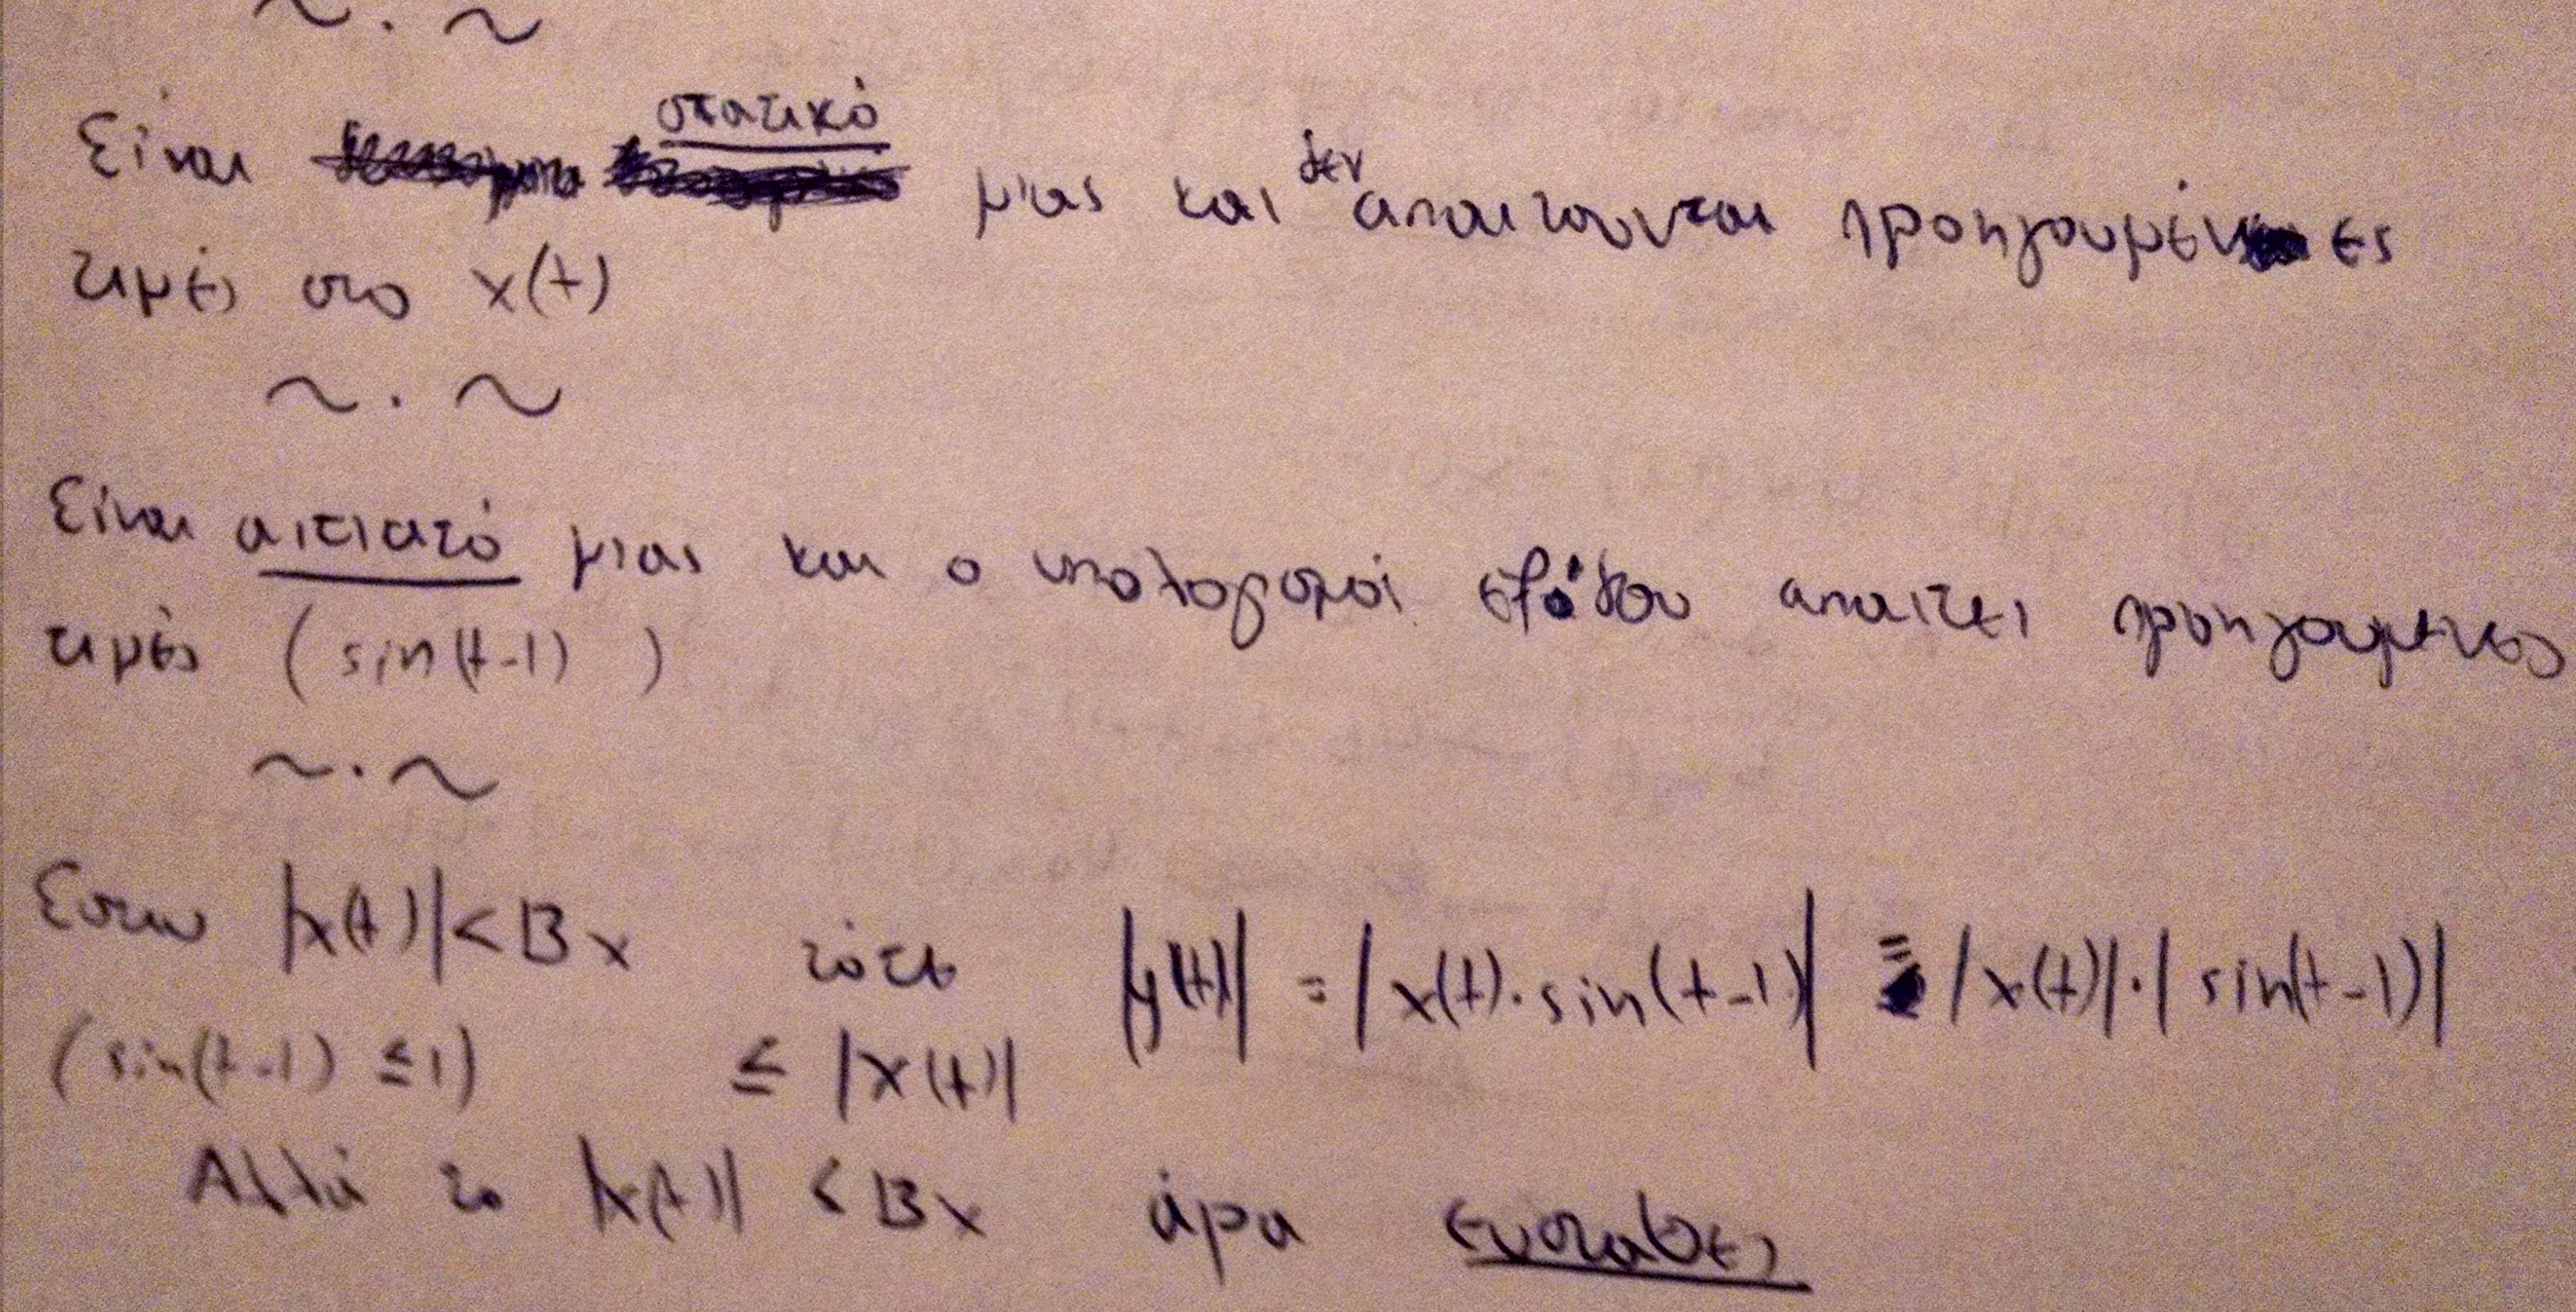 ~ . ~
Είναι στατικό μιας και δεν απαιτουνται προηγουμένες
τιμές στο x(t)
~ . ~
Είναι αιτιατό μιας και ο υπολογισμός εξόδου απαιτει προηγουμενες
τιμές (sin(t-1) )
~ . ~
Εστω |x(t)| < Bx τότε |y(t)| = |x(t)·sin(t-1)| = |x(t)|·|sin(t-1)|
(sin(t-1) ≤ 1) ≤ |x(t)|
Αλλά το |x(t)| < Bx άρα ευσταθες